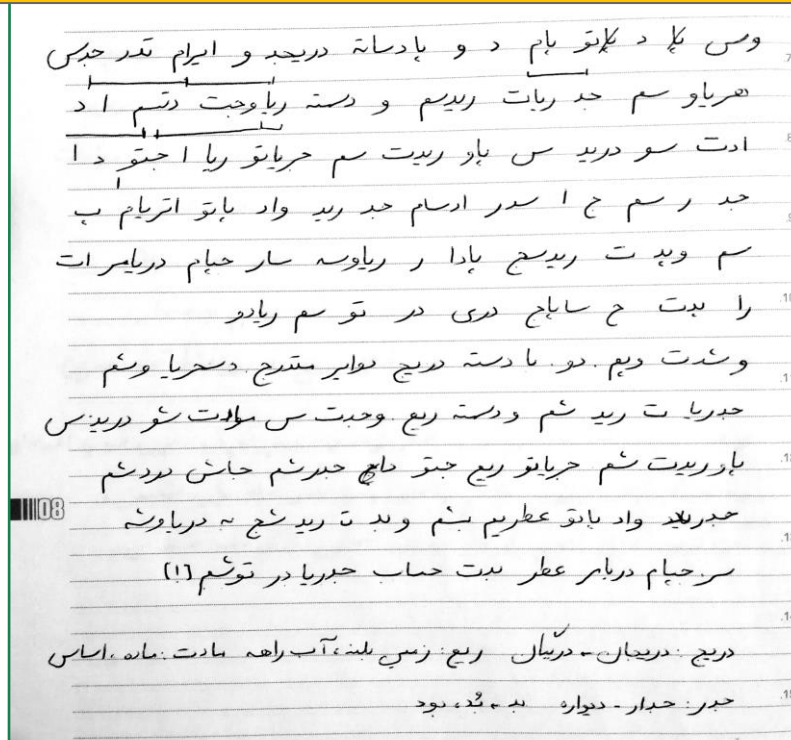 وس کا د کاتو بام د و بادسانه دریجد و ایرام تدر جدس
هریاو سم جد ریات ریدسم و دسته ریاوجت دتسم ا د
ادت سو درید س باو ریدت سم جریاتو ریا ا جتو د ا
جد ر سم ج ا سدر ادسام جد رید واد باتو اتریام ب
سم وبد ت ریدسج بادا ر ریاوسه سار جبام دریامر ات
را بدت ح ساباج دری در تو سم ریادو
وشدت دبم. دو. با دسته دریج دوایر متدرج. دسحریا وشم
جدریا ت رید شم و دسته ریع. وجبت س مادت شو درید.س
باو ریدت شم جریاتو ریع جتو جدرشم جاش دردشم
جدر واد باتو عطریم بشم وبد ت رید شج به دریاوشه
سر. جبام دربابر عطر بدت حساب جدریا در توشم (!)
دریج: دریجان - دریگان ریع: زمین بلند، آب راهه مادت: ماده، اساس
جدر: جدار - دیواره بد - بُد، بود
08